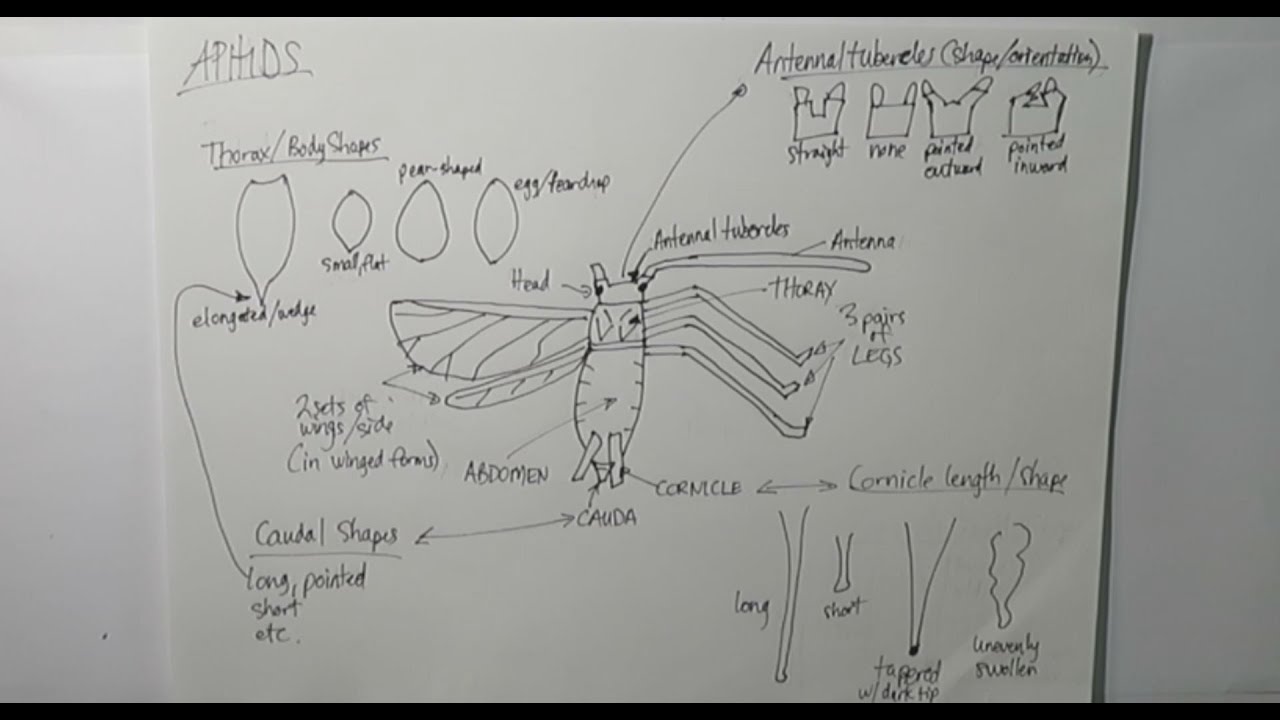 APHIDS
Antennal tubercles (shape/orientation)
straight
none
pointed
outward
pointed
inward
Thorax/Body Shapes
pear-shaped
egg/teardrop
small, flat
elongated/wedge
Antennal tubercles
Antenna
Head
THORAX
3 pairs
of
LEGS
2 sets of
wings/side
(in winged forms)
ABDOMEN
CORNICLE
Cornicle length/shape
CAUDA
Caudal Shapes
long, pointed
short
etc.
long
short
tapered
w/dark tip
unevenly
swollen